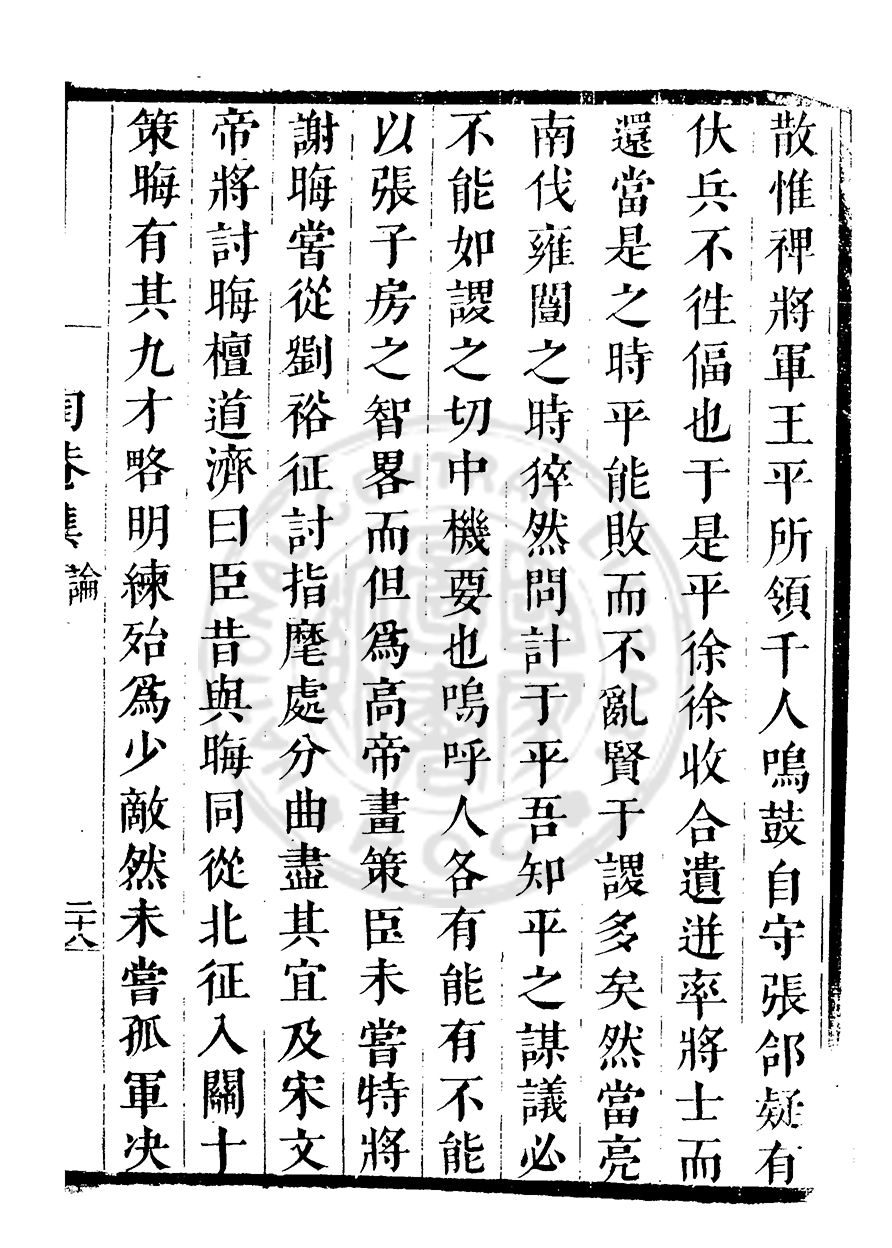 散惟裨將軍王平所領千人鳴鼓自守張郃疑有
伏兵不徃偪也于是平徐徐收合遺迸率將士而
還當是之時平能敗而不亂賢于謖多矣然當亮
南伐雍闓之時猝然問計于平吾知平之謀議必
不能如謖之切中機要也嗚呼人各有能有不能
以張子房之智畧而但爲高帝畫策臣未嘗特將
謝晦嘗從劉裕征討指麾處分曲盡其宜及宋文
帝將討晦檀道濟曰臣昔與晦同從北征入關十
策晦有其九才略明練殆爲少敵然未嘗孤軍决
陶菴集 論 二十八